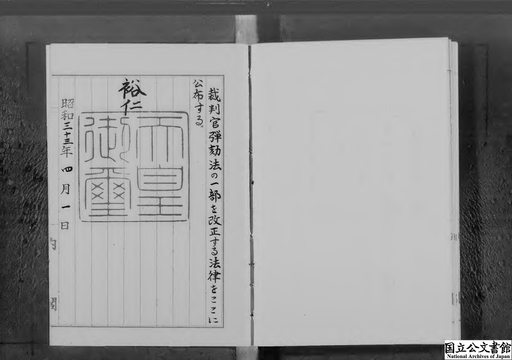 裁判官弾劾法の一部を改正する法律をここに
公布する。
裕仁
天皇
御璽
昭和三十三年四月一日
内閣
国立公文書館
National Archives of Japan